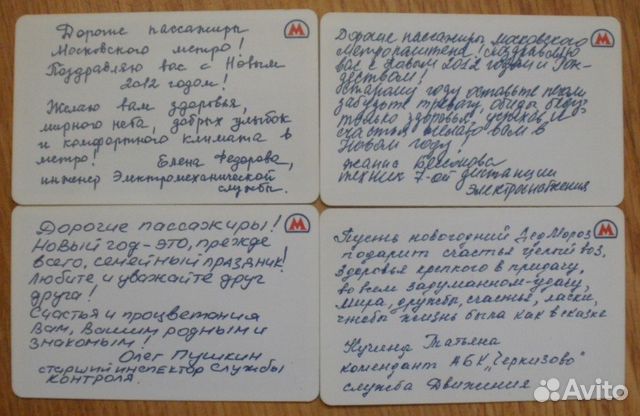 Дорогие пассажиры
Московского метро!
Поздравляю вас с Новым
2012 годом!
Желаю вам здоровья,
мирного неба, добрых улыбок
и комфортного климата в
метро! Елена Федорова,
инженер Электромеханической
службы.
М
Дорогие пассажиры московского
Метрополитена! Поздравляю
вас с Новым 2012 годом и Рож-
деством!
Старому году оставьте печали
забудьте тревогу, обиды, беду
только здоровья, успехов и
счастья желаю вам в
Новом году!
техник 7-ой дистанции
Электроснабжения
М
Дорогие пассажиры!
Новый год - это, прежде
всего, семейный праздник!
Любите и уважайте друг
друга!
Счастья и процветания
Вам, Вашим родным и
знакомым!
Олег Пушкин
старший инспектор Службы
контроля.
М
Пусть новогодний Дед Мороз
подарит счастья целый воз,
Здоровья крепкого в придачу,
во всем задуманном - удачу,
Мира, дружбы, счастья, ласки,
чтобы жизнь была как в сказке
Кучина Татьяна
комендант АБК „Черкизово"
служба Движения
М
Avito